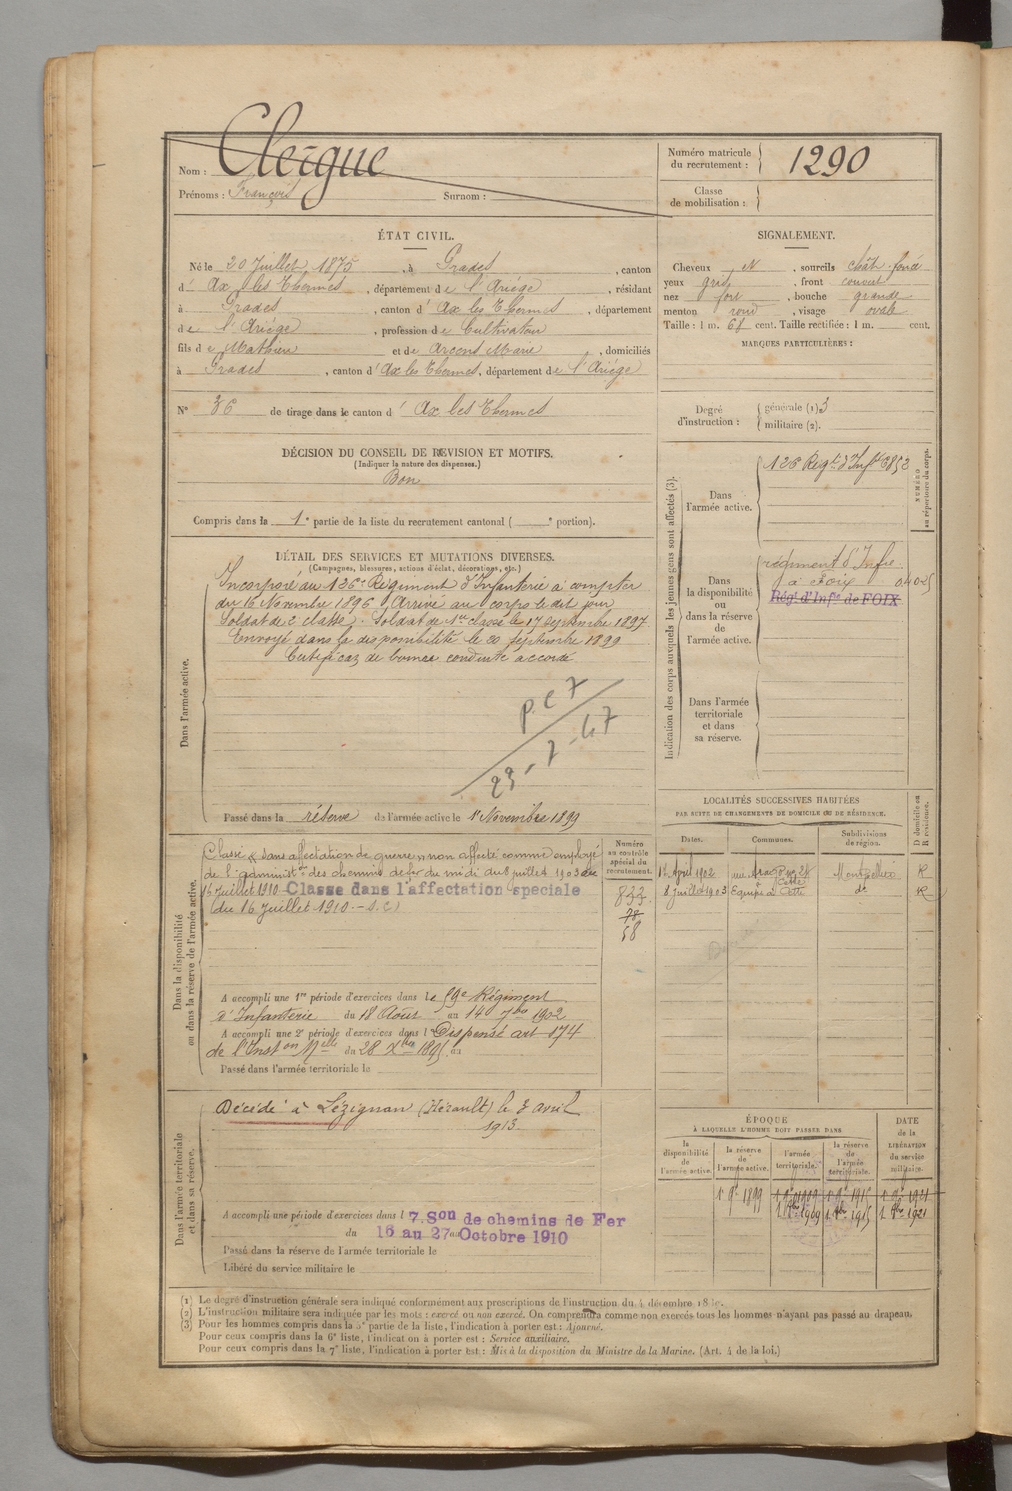 Nom : Clergue
Prénoms : François Surnom :
Numéro matricule du recrutement : 1290
Classe de mobilisation :
ÉTAT CIVIL.
Né le 20 Juillet 1875, à Prades, canton
d' Ax les Thermes, département de l'Ariège, résidant
à Prades, canton d' Ax les Thermes, département
de l'Ariège, profession de Cultivateur
fils de Mathieu et de Arcens Marie, domiciliés
à Prades, canton d' Ax les Thermes, département de l'Ariège
N° 36 de tirage dans le canton d' Ax les Thermes
SIGNALEMENT.
Cheveux et, sourcils chât. foncé
yeux gris, front couvert
nez fort, bouche grande
menton rond, visage ovale
Taille : 1 m. 61 cent. Taille rectifiée : 1 m. cent.
MARQUES PARTICULIÈRES :
Degré d'instruction : générale (1) 3
militaire (2).
DÉCISION DU CONSEIL DE REVISION ET MOTIFS.
(Indiquer la nature des dispenses.)
Bon
Compris dans la 1e partie de la liste du recrutement cantonal ( e portion).
DÉTAIL DES SERVICES ET MUTATIONS DIVERSES.
(Campagnes, blessures, actions d'éclat, décorations, etc.)
Dans l'armée active.
Incorporé au 126e Régiment d'Infanterie à compter
du 16 Novembre 1896. Arrivé au corps le dit jour
Soldat de 2e classe. Soldat de 1re classe le 17 Septembre 1897.
Envoyé dans la disponibilité le 20 Septembre 1899
Certificat de bonne conduite accordé
p c 7
23-7-47
Passé dans la réserve de l'armée active le 1r Novembre 1899
Indication des corps auxquels les jeunes gens sont affectés (3).
NUMÉRO au répertoire du corps.
Dans l'armée active.
126 Régt d'Inf.ie 6852
Dans la disponibilité ou dans la réserve de l'armée active.
régiment d'Infie
à Foix 04025
Régt d'Infie de FOIX
Dans l'armée territoriale et dans sa réserve.
Dans la disponibilité ou dans la réserve de l'armée active.
Classé dans affectation de guerre, non affecté comme employé
de l'administ.on des chemins de fer du midi du 8 juillet 1903 au
15 Juillet 1910 Classe dans l'affectation speciale
(du 16 Juillet 1910. - S.C)
Numéro au contrôle spécial du recrutement.
833
78
58
A accompli une 1re période d'exercices dans le 59e Régiment
d'Infanterie du 18 Août au 14 7bre 1902
A accompli une 2e période d'exercices dans l Dispensé art 174
de l'Inston Melle du 28 Xbre 1895 au
Passé dans l'armée territoriale le
LOCALITÉS SUCCESSIVES HABITÉES
PAR SUITE DE CHANGEMENTS DE DOMICILE OU DE RÉSIDENCE.
Dates. Communes. Subdivisions de région. D domicile ou R résidence.
1r Avril 1902 Cette Montpellier R
8 Juillet 1903 Equipe à Cette do R
Dans l'armée territoriale et dans sa réserve.
Décédé à Lézignan (Hérault) le 3 avril
1913
A accompli une période d'exercices dans l 7. Son de chemins de Fer
du 16 au 27 au Octobre 1910
Passé dans la réserve de l'armée territoriale le
Libéré du service militaire le
ÉPOQUE
À LAQUELLE L'HOMME DOIT PASSER DANS
la disponibilité de l'armée active.
la réserve de l'armée active.
l'armée territoriale.
la réserve de l'armée territoriale.
DATE de la LIBÉRATION du service militaire.
1r 9re 1899 1r 9re 1909 1r 9re 1915 1r 9re 1921
1 8bre 1909 1 8bre 1915 1 8bre 1921
(1) Le degré d'instruction générale sera indiqué conformément aux prescriptions de l'instruction du 4 décembre
(2) L'instruction militaire sera indiquée par les mots : exercé ou non exercé. On comprendra comme non exercés tous les hommes n'ayant pas passé au drapeau.
(3) Pour les hommes compris dans la 5e partie de la liste, l'indication à porter est : Ajourné.
Pour ceux compris dans la 6e liste, l'indication à porter est : Service auxiliaire.
Pour ceux compris dans la 7e liste, l'indication à porter est : Mis à la disposition du Ministre de la Marine. (Art. 4 de la loi.)